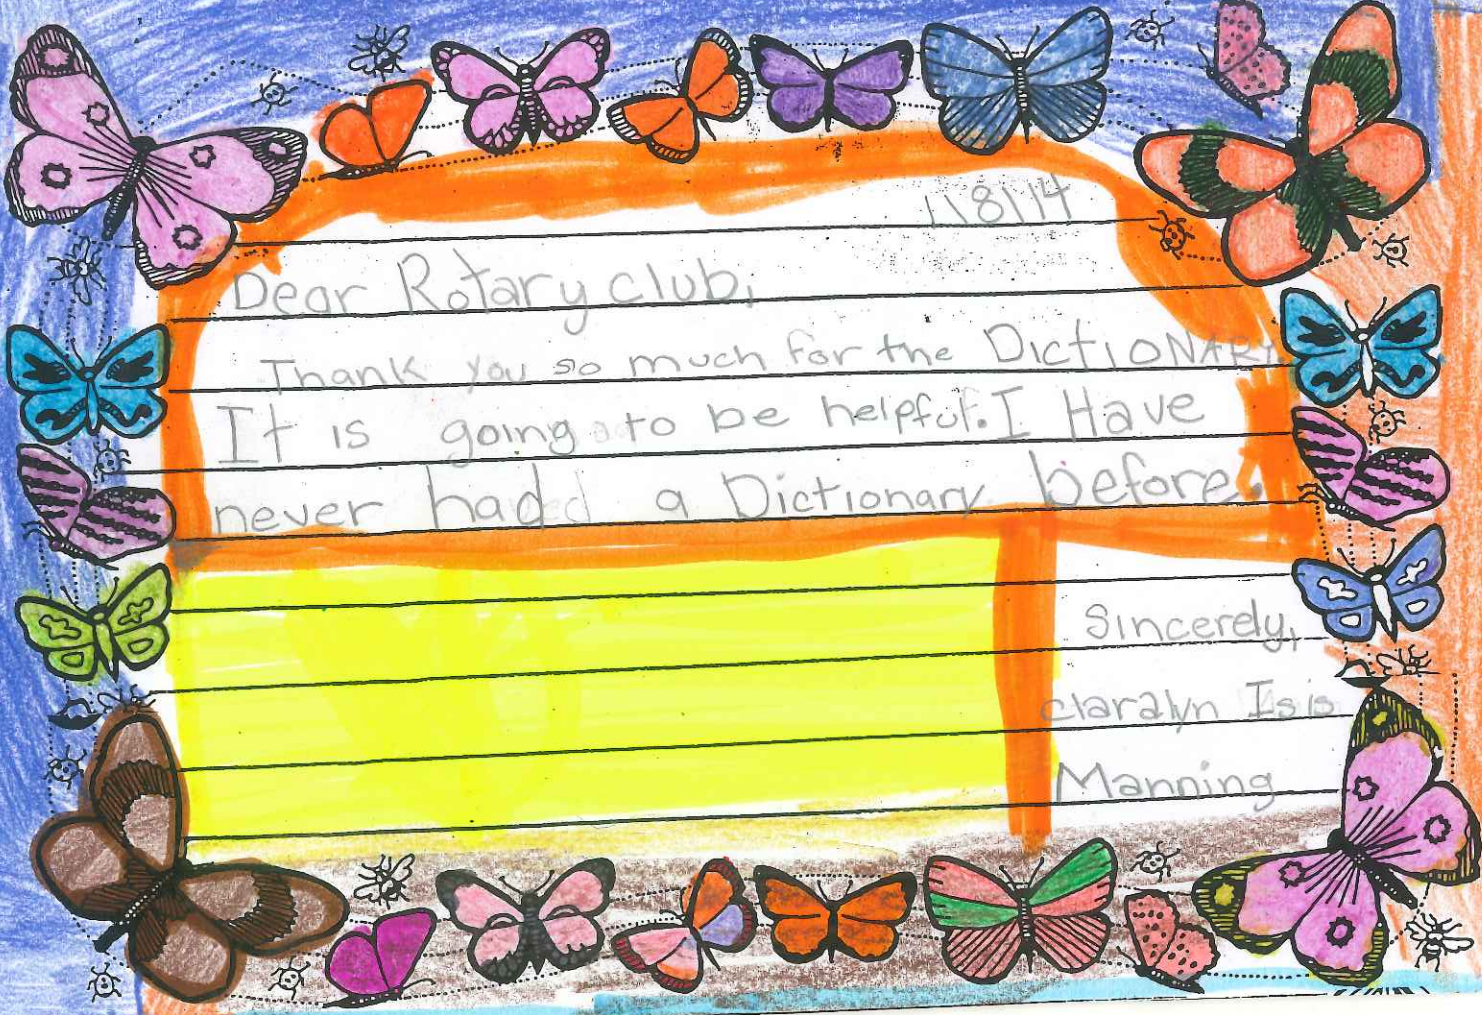 1/8/14
Dear Rotary club,
Thank you so much for the DictiONARY
It is going to be helpful. I Have
never had a Dictionary before.
Sincerely,
claralyn Isis
Manning